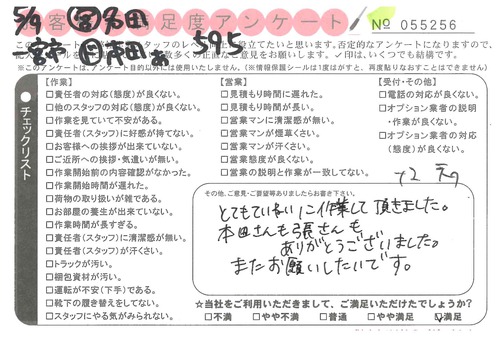 お客様満足度アンケート
№ 055256
5/9
595
一宮市
スタッフのレベル向上に役立てたいと思います。否定的なアンケートになりますので、
数多くの正直なご意見をお願いします。✓印は、いくつでも結構です。
※このアンケートは、アンケート目的以外には使用いたしません。(※情報保護シールは1度はがすと、再度貼りなおすことはできません)
● チェックリスト
【作業】
□責任者の対応(態度)が良くない。
□他のスタッフの対応(態度)が良くない。
□作業を見ていて不安がある。
□責任者(スタッフ)に好感が持てない。
□お客様への挨拶が出来ていない。
□ご近所への挨拶・気遣いが無い。
□作業開始前の内容確認がなかった。
□作業開始時間が遅れた。
□荷物の取り扱いが雑である。
□お部屋の養生が出来ていない。
□作業時間が長すぎる。
□責任者(スタッフ)に清潔感が無い。
□責任者(スタッフ)が汗くさい。
□トラックが汚い。
□梱包資材が汚い。
□運転が不安(下手)である。
□靴下の履き替えをしてない。
□スタッフにやる気がみられない。
【営業】
□見積もり時間に遅れた。
□見積もり時間が長い。
□営業マンに清潔感が無い。
□営業マンが煙草くさい。
□営業マンが汗くさい。
□営業態度が良くない。
□営業の説明と作業が一致してない。
【受付・その他】
□電話の対応が良くない。
□オプション業者の説明
・作業が良くない。
□オプション業者の対応
(態度)が良くない。
その他、ご意見・ご要望等ありましたらお書き下さい。
とてもていねいに作業して頂きました。
本田さんも張さんも
ありがとうございました。
またお願いしたいです。
★当社をご利用いただきまして、ご満足いただけたでしょうか?
□不満 □やや不満 □普通 □やや満足 ☑満足